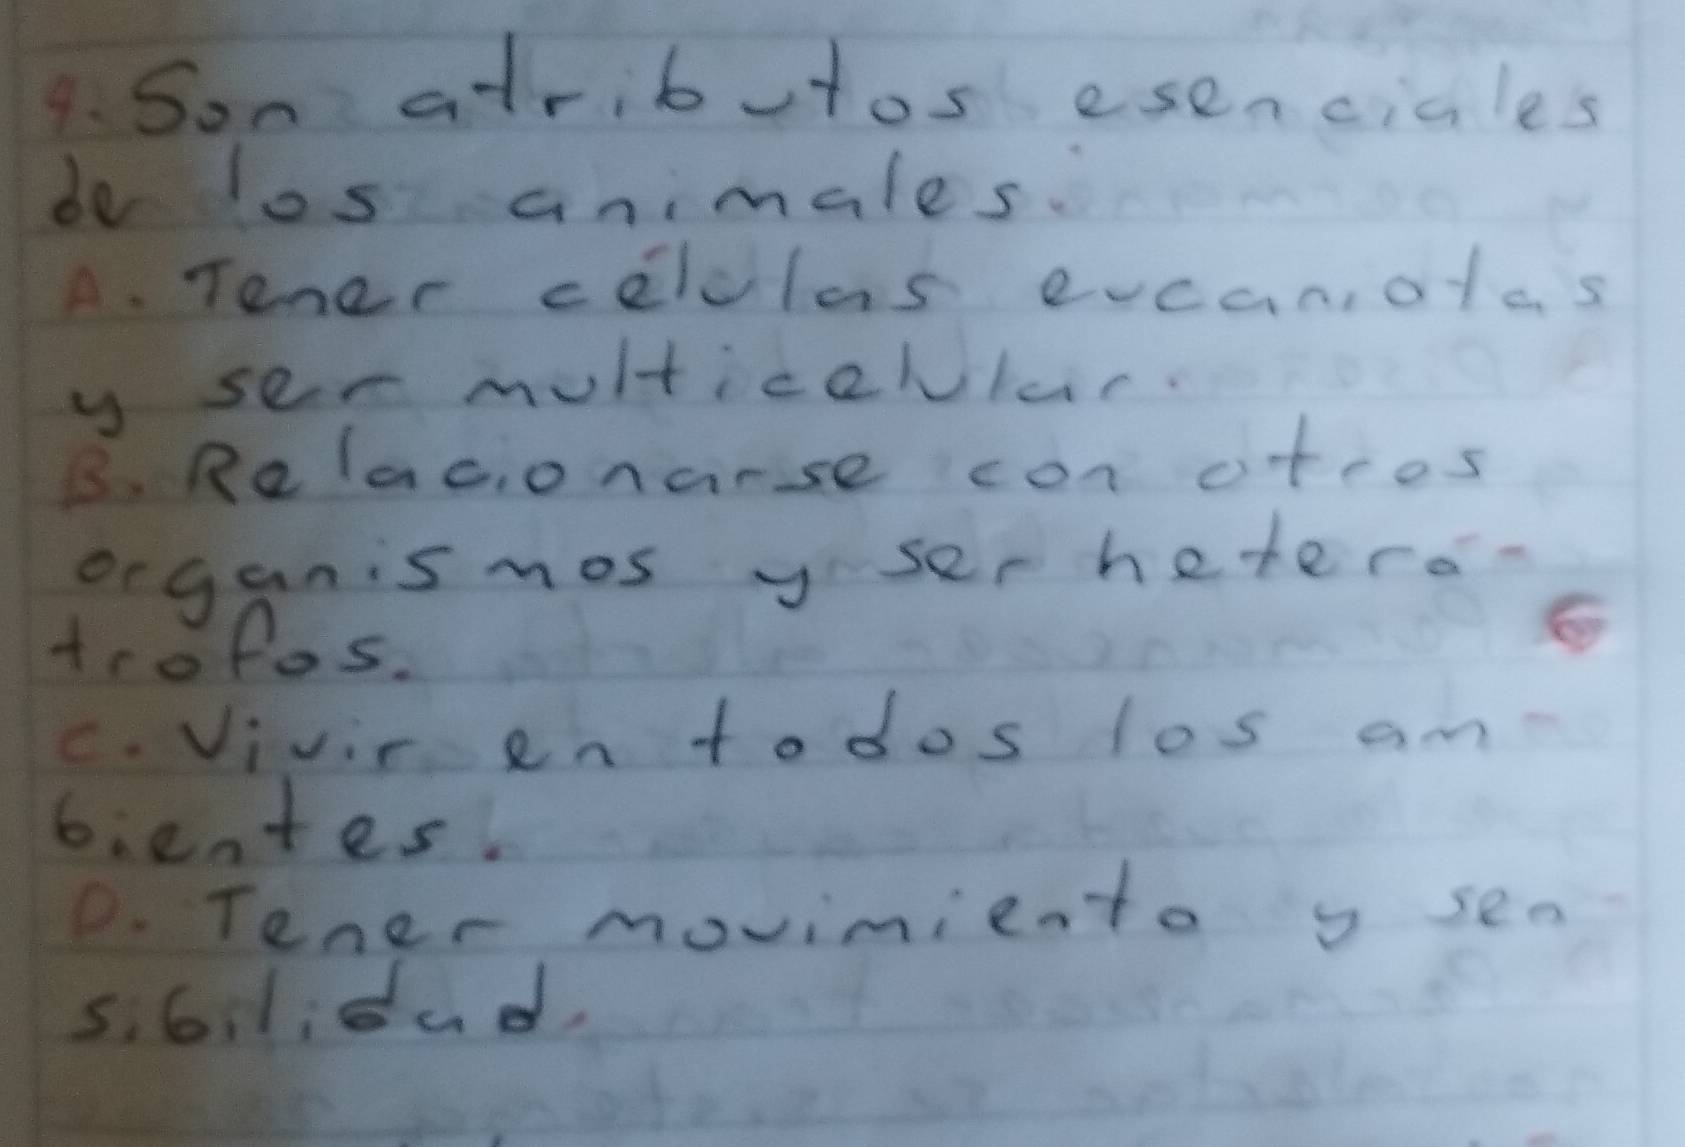 9. Son atributos esenciales
de los animales.
A. Tener células eucaniotas
y ser multicelular.
B. Relacionarse con otros
organismos y ser heteró-
trofos.
C. Vivir en todos los am-
bientes.
D. Tener movimiento y sen-
sibilidad.